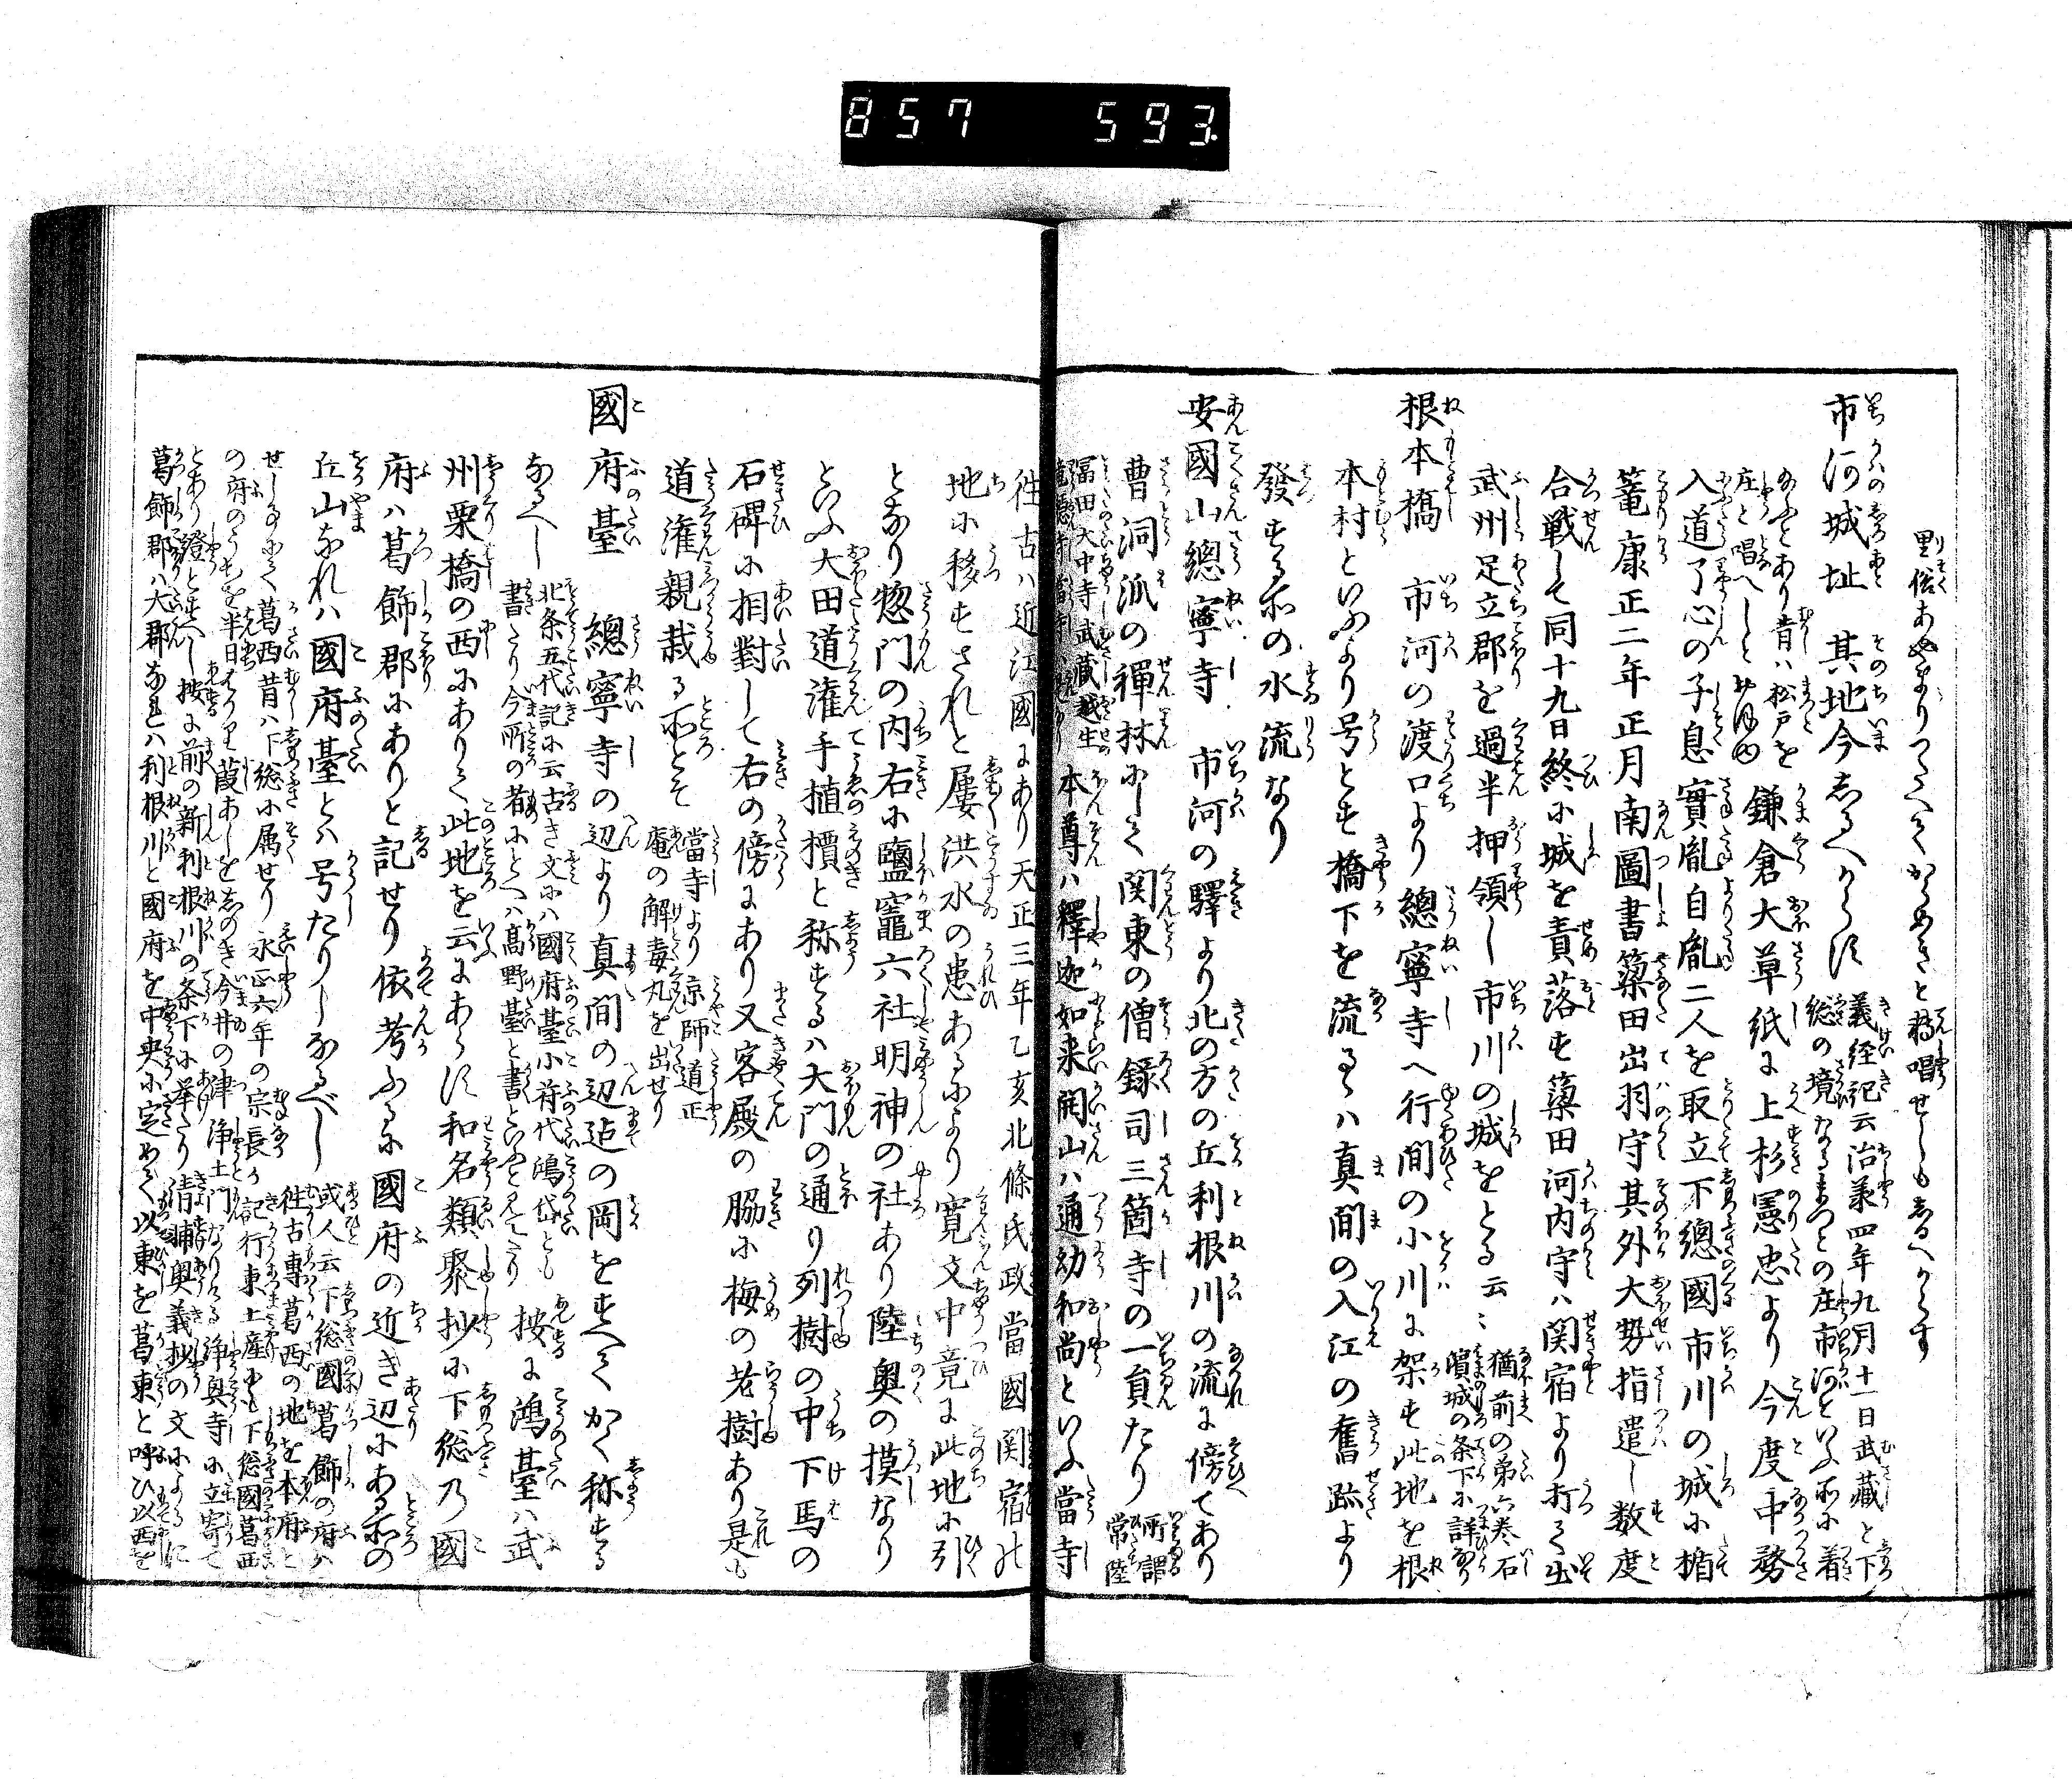 857 593.
里俗あやまりつたへてからめきと稱唱せしもしるへからす
市河城址 其地今しるへからす 義経記云治承四年九月十一日武藏と下
総の境なるまつとの庄市河といふ所に着
ぬふとあり昔ハ松戸を
庄と唱へしと
鎌倉大草紙に上杉憲忠より今度中務
入道了心の子息實胤自胤二人を取立下總國市川の城に楯
篭康正二年正月南圖書簗田出羽守其外大勢指遣し数度
合戦して同十九日終に城を責落す簗田河内守ハ関宿より打て出
武州足立郡を過半押領し市川の城をとる云〻 猶前の第六巻石
濱城の条下に詳なり
根本橋 市河の渡口より總寧寺へ行間の小川に架す此地を根
本村といふより号とす橋下を流るゝハ真間の入江の舊跡より
發する所の水流なり
安國山總寧寺 市河の驛より北の方の丘利根川の流に傍てあり
曹洞派の禪林にして関東の僧録司三箇寺の一員たり 所謂
常陸
冨田大中寺武藏越生
龍穏寺當寺
本尊ハ釋迦如来開山ハ通幼和尚といふ當寺
徃古ハ近江國にあり天正三年乙亥北條氏政當國関宿の
地に移すされと屢洪水の患あるにより寛文中竟に此地に引
となり惣門の内右に鹽竈六社明神の社あり陸奥の摸なり
といふ大田道潅手植檟と称するハ大門の通り列樹の中下馬の
石碑に相對して右の傍にあり又客殿の脇に梅の老樹あり是も
道潅親栽る所とそ 當寺より京師道正
庵の解毒丸を出せり
國府臺 總寧寺の辺より真間の辺迠の岡をすへてかく称する
なるへし 北条五代記に云古き文にハ國府臺小府代鴻岱とも
書たり今所の者にとへハ髙野臺と書といふと見えたり
按に鴻臺ハ武
州栗橋の西にありて此地を云にあらす和名類聚抄に下総乃國
府ハ葛飾郡にありと記せり依考ふるに國府の近き辺にある所の
丘山なれハ國府臺とハ号たりしなるべし 或人云下総國葛飾の府ハ
徃古専葛西の地を本府と
せしなりとて葛西昔ハ下総に属せり永正六年の宗長か記行東土産にも下総國葛西
の府のうちを半日はかり葭あしをしのき今井の津浄土門なりける浄興寺に立寄て
とあり證とすへし按に前の新利根川の条下に挙たり清輔奥義抄の文によるに
葛飾郡ハ大郡なれハ利根川と國府を中央に定めて以東を葛東と呼ひ以西を